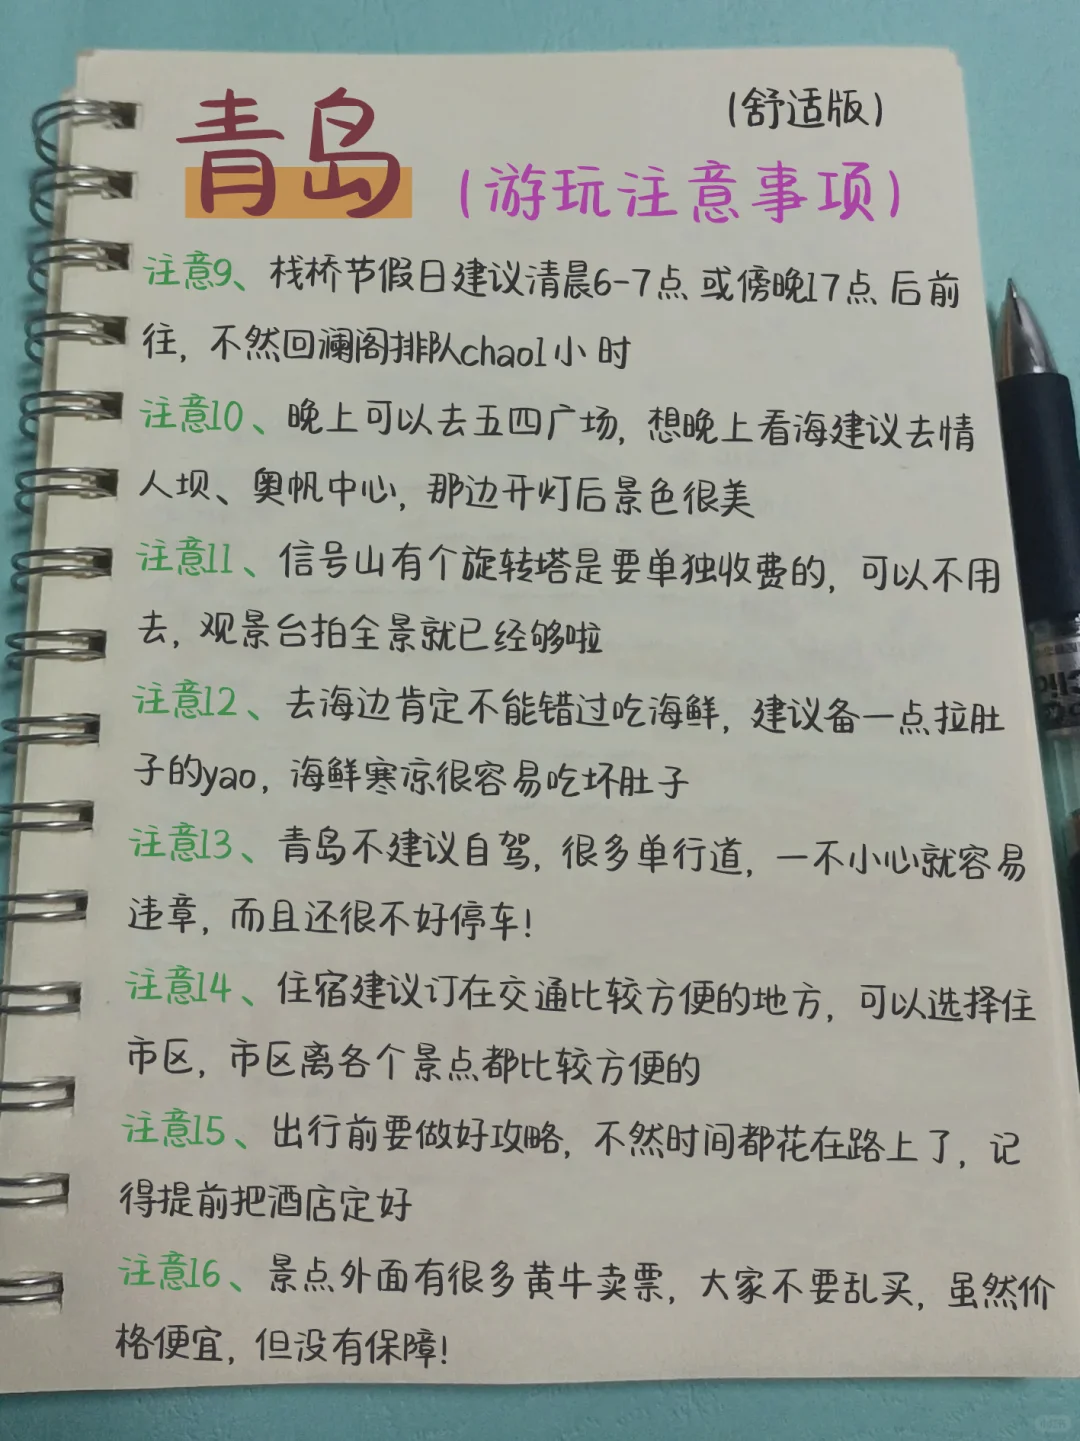 青岛
(舒适版)
(游玩注意事项)
注意9、栈桥节假日建议清晨6-7点 或傍晚17点 后前
往, 不然回澜阁排队chao1小时
注意10、晚上可以去五四广场, 想晚上看海建议去情
人坝、奥帆中心, 那边开灯后景色很美
注意11、信号山有个旋转塔是要单独收费的, 可以不用
去, 观景台拍全景就已经够啦
注意12、去海边肯定不能错过吃海鲜, 建议备一点拉肚
子的yao, 海鲜寒凉很容易吃坏肚子
注意13、青岛不建议自驾, 很多单行道, 一不小心就容易
违章, 而且还很不好停车!
注意14、住宿建议订在交通比较方便的地方, 可以选择住
市区, 市区离各个景点都比较方便的
注意15、出行前要做好攻略, 不然时间都花在路上了, 记
得提前把酒店定好
注意16、景点外面有很多黄牛卖票, 大家不要乱买, 虽然价
格便宜, 但没有保障!